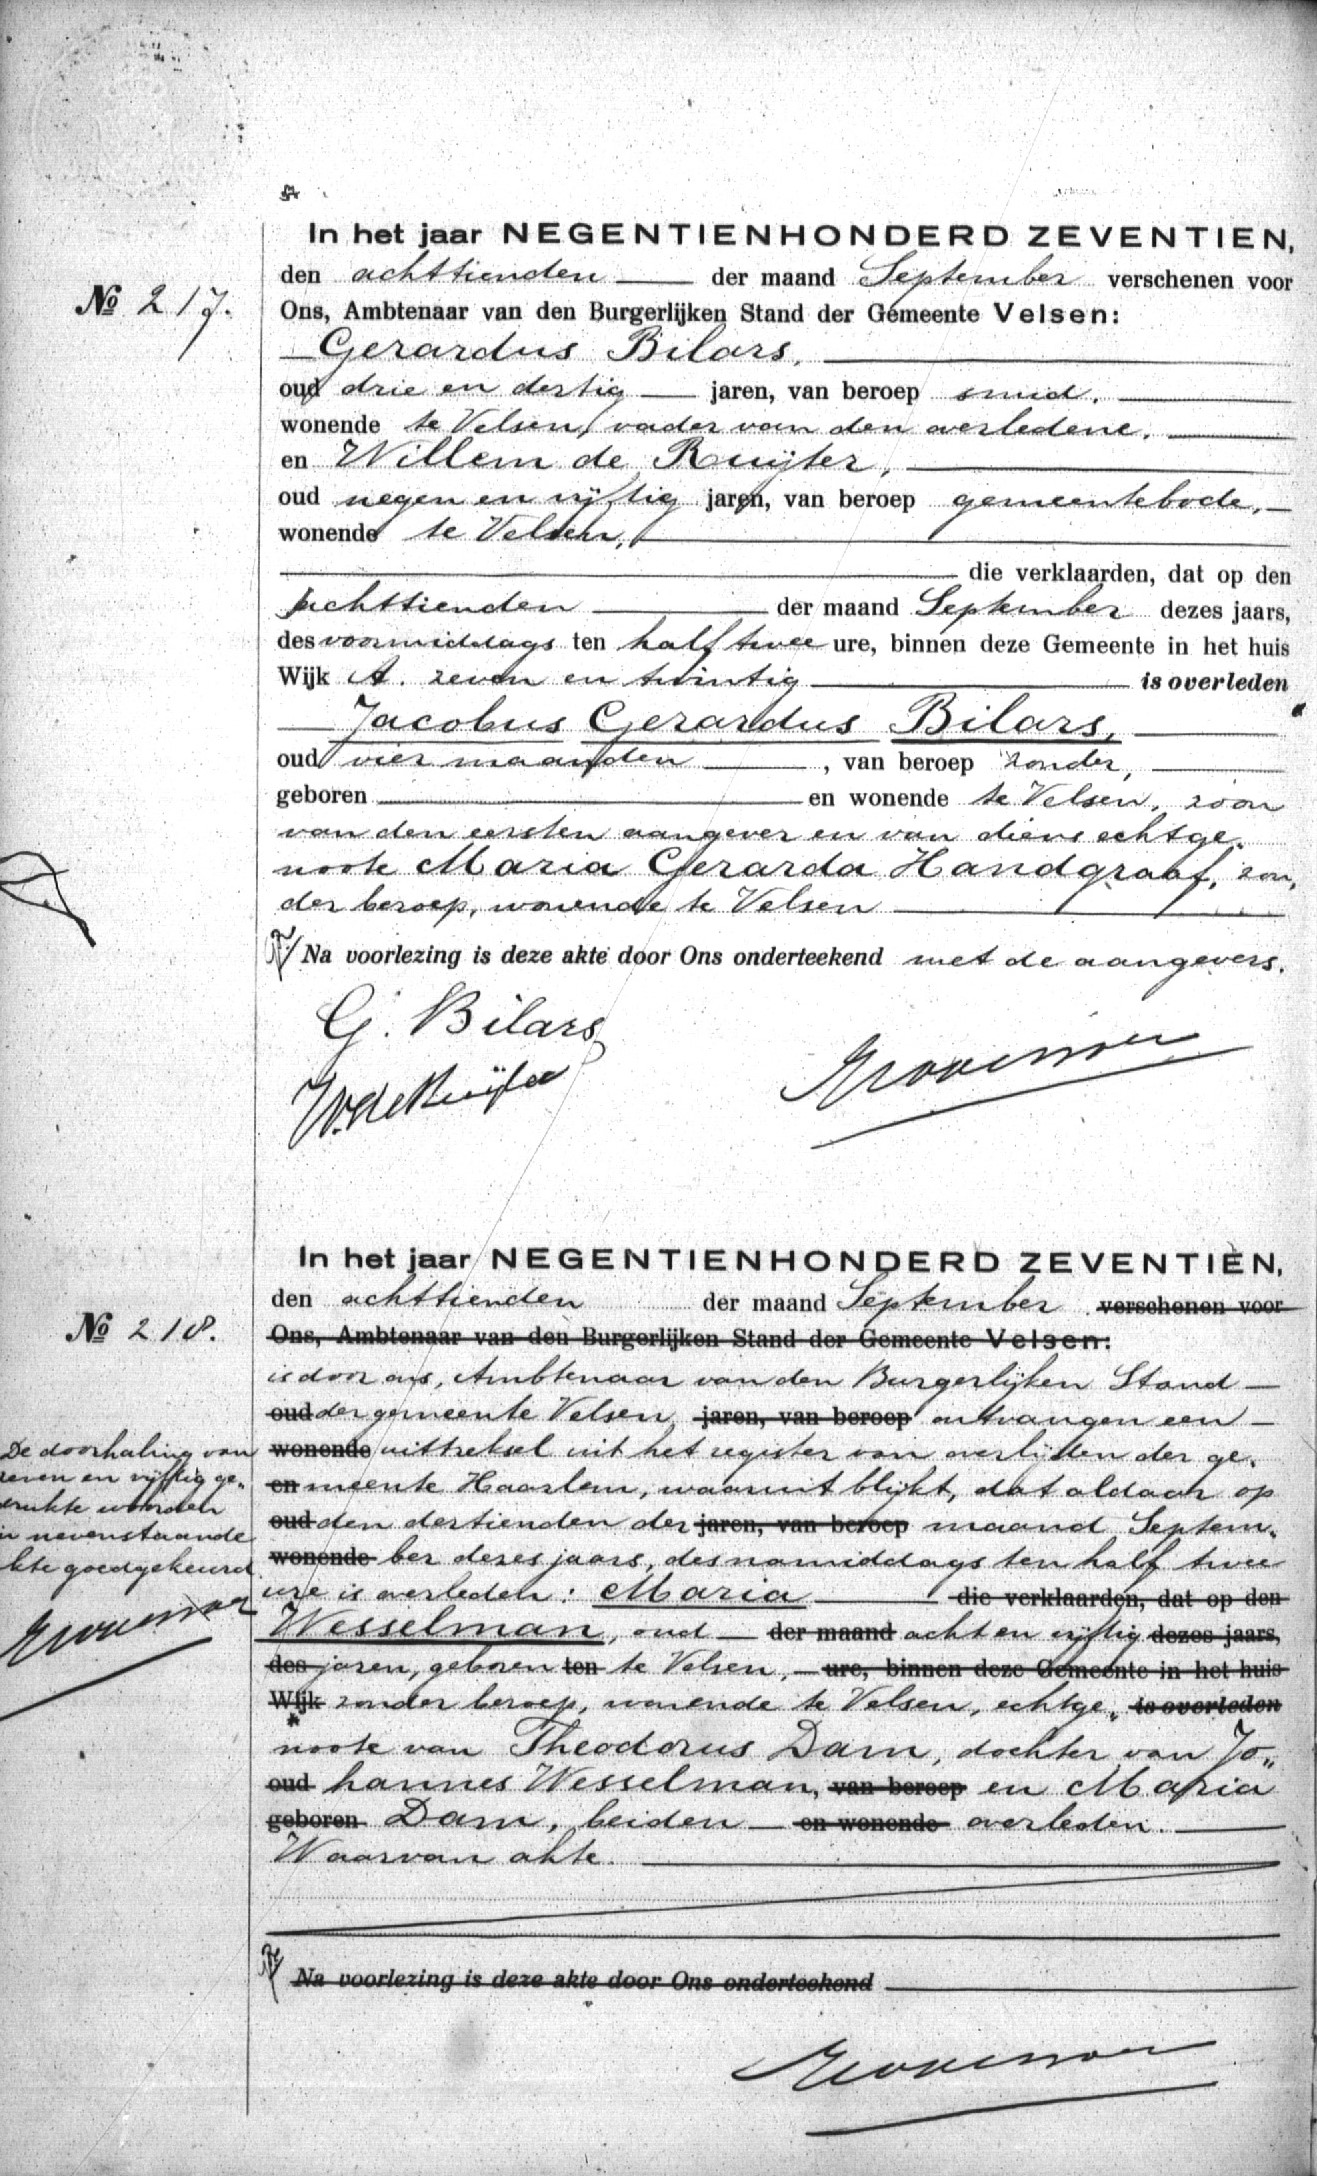 In het jaar NEGENTIENHONDERD ZEVENTIEN,
den achttienden der maand September verschenen voor
№ 217.
Ons, Ambtenaar van den Burgerlijken Stand der Gemeente Velsen:
Gerardus Bilars,
oud drie en dertig jaren, van beroep smid,
wonende te Velsen, vader van den overledene,
en Willem de Ruijter,
oud negen en vijftig jaren, van beroep gemeentebode,
wonende te Velsen,
die verklaarden, dat op den
achttienden der maand September dezes jaars,
des voormiddags ten half twee ure, binnen deze Gemeente in het huis
Wijk A. zeven en twintig is overleden
Jacobus Gerardus Bilars,
oud vier maanden, van beroep zonder,
geboren en wonende te Velsen, zoon
van den eersten aangever en van diens echtge„
noote Maria Gerarda Handgraaf, zon„
der beroep, wonende te Velsen
Na voorlezing is deze akte door Ons onderteekend met de aangevers.
G. Bilars
W. de Ruijter
In het jaar NEGENTIENHONDERD ZEVENTIEN,
den achttienden der maand September verschenen voor
№ 218.
Ons, Ambtenaar van den Burgerlijken Stand der Gemeente Velsen:
is door ons, Ambtenaar van den Burgerlijken Stand
oud der gemeente Velsen, jaren, van beroep ontvangen een
wonende uittreksel uit het register van overlijden der ge„
en meente Haarlem, waaruit blijkt, dat aldaar op
oud den dertienden der jaren, van beroep maand Septem„
wonende ber dezes jaars, des namiddags ten half twee
ure is overleden: Maria die verklaarden, dat op den
Wesselman, oud der maand acht en vijftig dezes jaars,
des jaren, geboren ten te Velsen, ure, binnen deze Gemeente in het huis
Wijk zonder beroep, wonende te Velsen, echtge„ is overleden
noote van Theodorus Dam, dochter van Jo„
oud hannes Wesselman, van beroep en Maria
geboren Dam, beiden en wonende overleden.
Waarvan akte.
Na voorlezing is deze akte door Ons onderteekend
De doorhaling van
zeven en vijftig ge„
drukte woorden
in nevenstaande
akte goedgekeurd